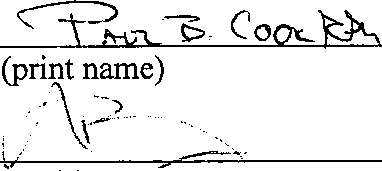 Paul B. Cook RPh
(print name)